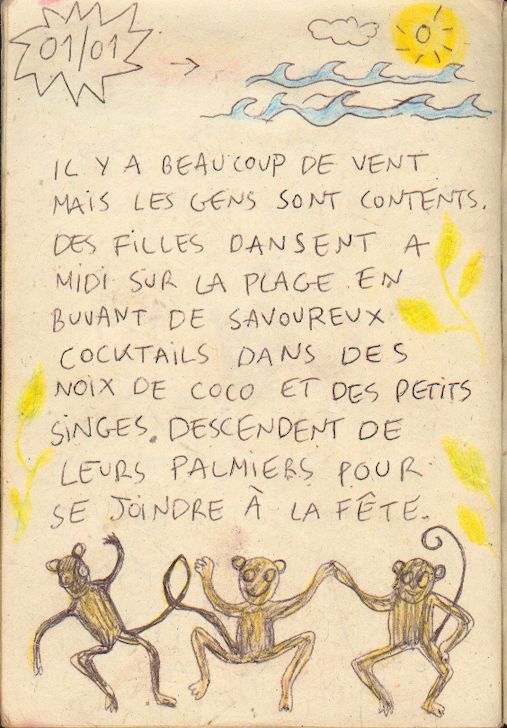 01/01
IL Y A BEAUCOUP DE VENT
MAIS LES GENS SONT CONTENTS.
DES FILLES DANSENT A
MIDI SUR LA PLAGE EN
BUVANT DE SAVOUREUX
COCKTAILS DANS DES
NOIX DE COCO ET DES PETITS
SINGES. DESCENDENT DE
LEURS PALMIERS POUR
SE JOINDRE À LA FÊTE.